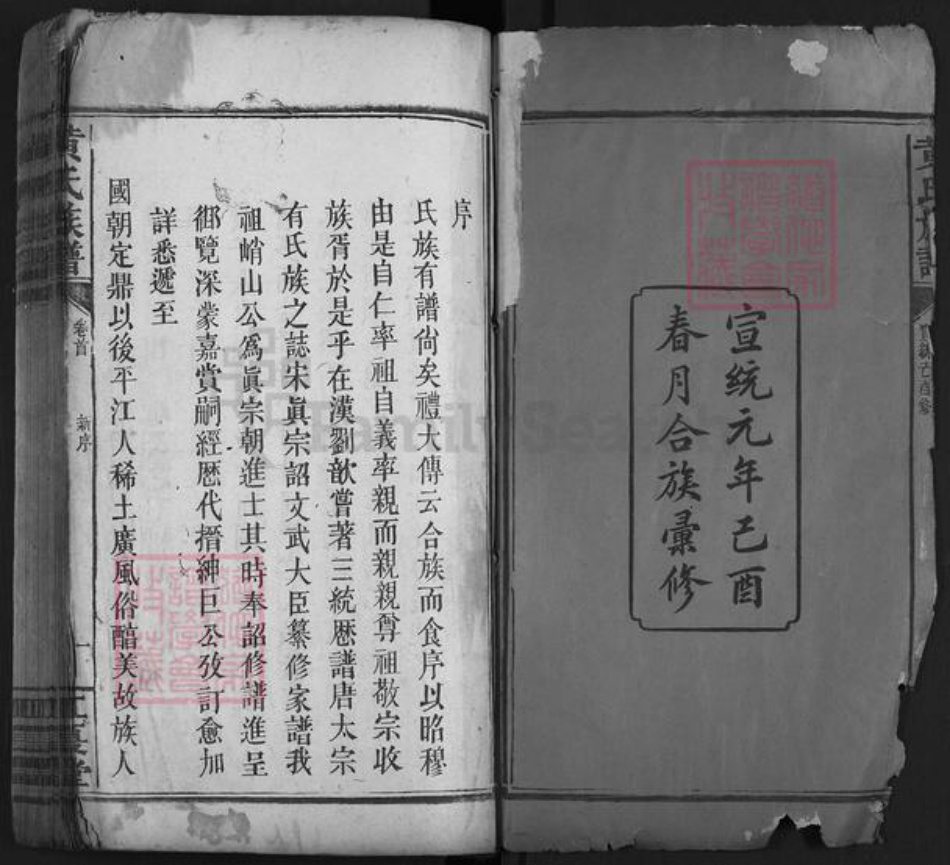 宣統元年己酉
春月合族彙修
序
氏族有譜尙矣禮大傳云合族而食序以昭穆
由是自仁率祖自義率親而親親尊祖敬宗收
族胥於是乎在漢劉歆嘗著三統歷譜唐太宗
有氏族之誌宋眞宗詔文武大臣纂修家譜我
祖峭山公爲眞宗朝進士其時奉詔修譜進呈
御覽深蒙嘉賞嗣經歷代搢紳巨公攷訂愈加
詳悉遞至
國朝定鼎以後平江人稀土廣風俗醕美故族人
黃氏族譜
卷首
新序
一
堂
黃氏族譜
FamilySearch